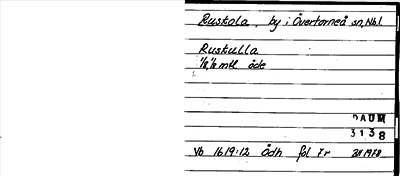 Ruskola, by i Övertorneå sn, Nbl.
Ruskulla
1/8, 1/8 mtl öde
DAUM
3138
Vb 1619:12 Ödh fol 7r BH 1978